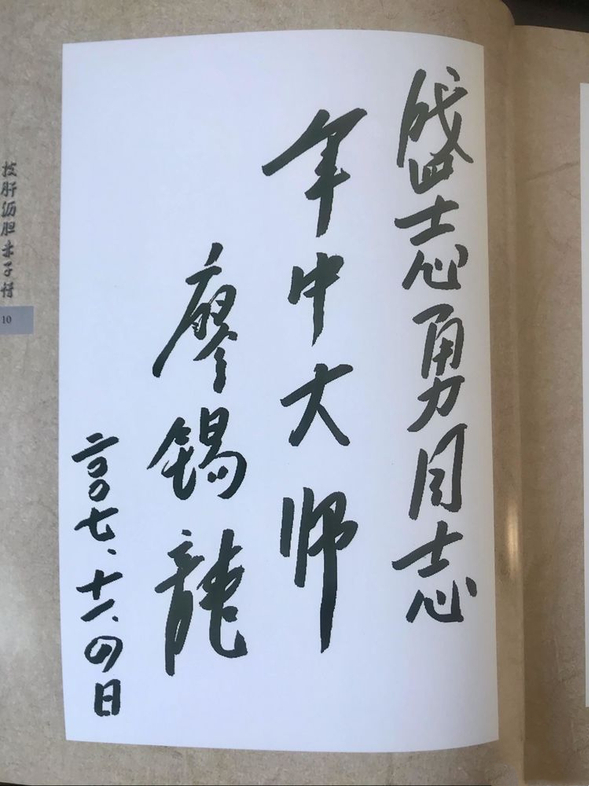 盛志勇同志
军中大师
廖锡龍
二〇〇七、十一、四日
披肝沥胆赤子情
10